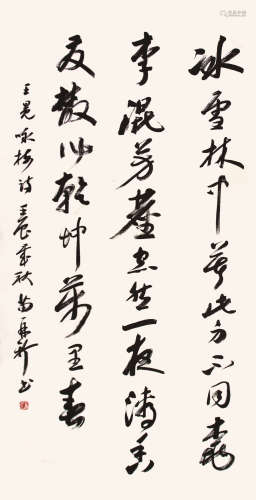 冰雪林中著此身不同桃
李混芳塵忽然一夜清香
发散作乾坤萬里春
王冕詠梅诗 壬辰歲秋 苗再新书